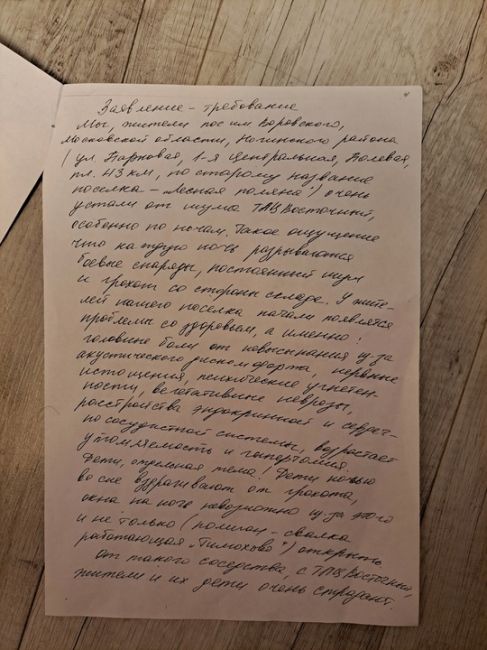 Заявление - требование
Мы, жители пос им Воровского,
Московской области, Ногинского района
(ул Парковая, 1-я Центральная, Полевая,
пл. 43 км, по старому название
поселка - „Лесная поляна") очень
устали от шума ТЛЦ Восточный,
особенно по ночам. Такое ощущение
что каждую ночь разрываются
боевые снаряды, постоянный шум
и грохот со стороны склада. У жите-
лей нашего поселка начали появлятся
проблемы со здоровьем, а именно:
головные боли от невысыпания из-за
акустического дискомфорта, нервные
истощения, психические угнетен-
ности, вегетативные неврозы,
расстройства эндокринной и сердеч-
но сосудистой системы, возрастает
утомляемость и гипертония.
Дети, отдельная тема! Дети ночью
во сне вздрагивают от грохота,
окна на ночь невозможно из-за этого
и не только (полигон - свалка
работающая „Тимохово") открыть
От такого соседства, с ТЛЦ Восточный,
жители и их дети очень страдают.